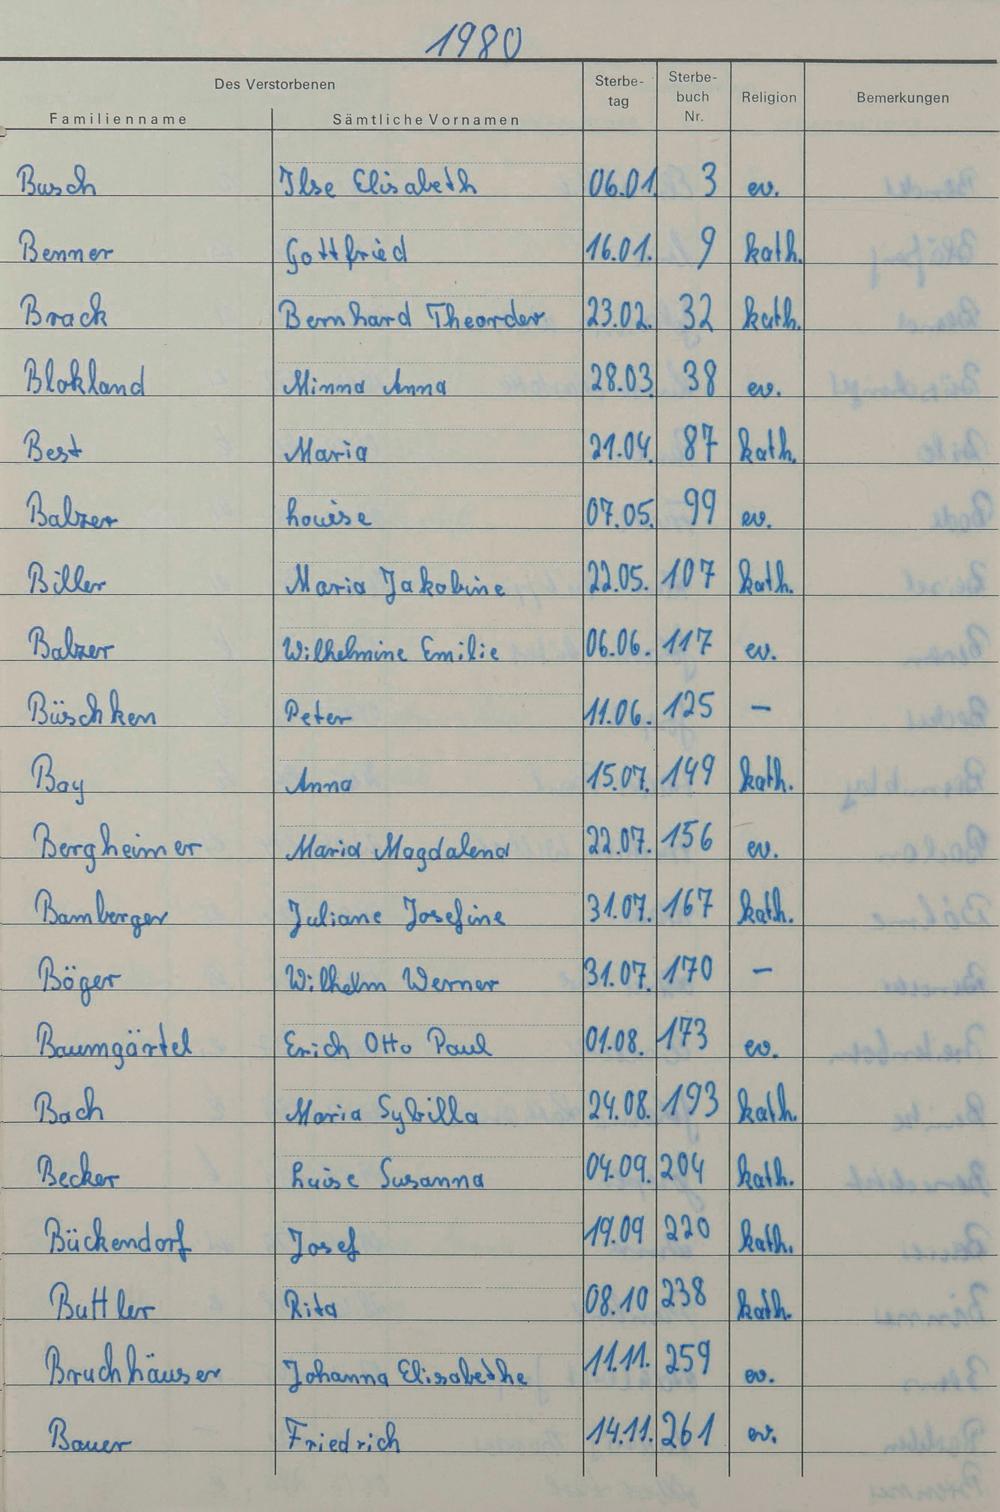 1980
Des Verstorbenen Sterbe- Sterbe-
tag buch Religion Bemerkungen
Familienname Sämtliche Vornamen Nr.
Busch Ilse Elisabeth 06.01. 3 ev.
Benner Gottfried 16.01. 9 kath.
Brack Bernhard Theorder 23.02. 32 kath.
Blokland Minna Anna 28.03. 38 ev.
Best Maria 21.04. 87 kath.
Balzer Louise 07.05. 99 ev.
Biller Maria Jakobine 22.05. 107 kath.
Balzer Wilhelmine Emilie 06.06. 117 ev.
Büschken Peter 11.06. 125 –
Bay Anna 15.07. 149 kath.
Bergheimer Maria Magdalena 22.07. 156 ev.
Bamberger Juliane Josefine 31.07. 167 kath.
Böger Wilhelm Werner 31.07. 170 –
Baumgärtel Erich Otto Paul 01.08. 173 ev.
Bach Maria Sybilla 24.08. 193 kath.
Becker Luise Susanna 04.09. 204 kath.
Bückendorf Josef 19.09 220 kath.
Buttler Rita 08.10 238 kath.
Bruchhäuser Johanna Elisabethe 11.11. 259 ev.
Bauer Friedrich 14.11. 261 ev.